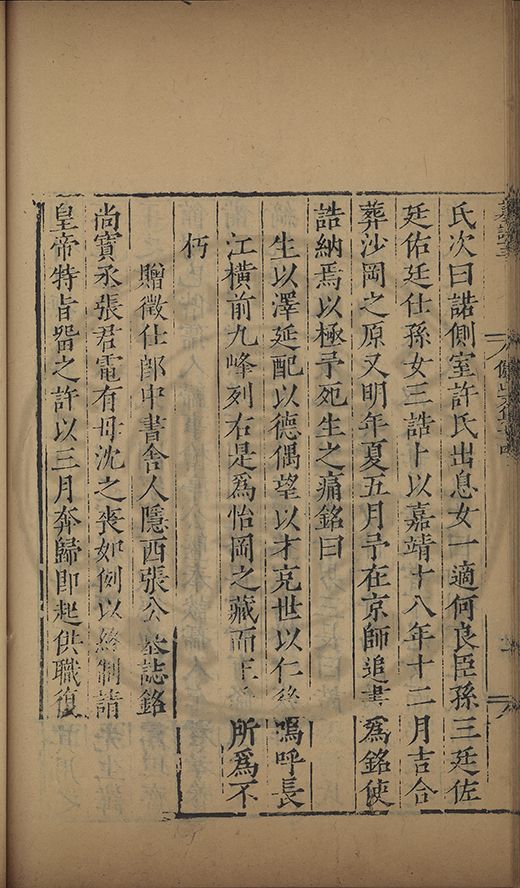 氏次曰諾側室許氏出息女一適何良臣孫三廷佐
廷佑廷仕孫女三誥卜以嘉靖十八年十二月吉合
葬沙岡之原又明年夏五月予在京師追書為銘使
誥納焉以極予死生之痛銘曰
生以澤延配以德偶望以才克世以仁終嗚呼長
江橫前九峰列右是為怡岡之藏而正所為不
朽
贈徵仕郎中書舍人隱西張公墓誌銘
尚寶丞張君電有母沈之喪如例以終制請
皇帝特旨畱之許以三月奔歸即起供職復